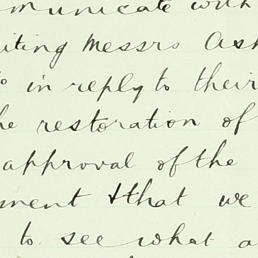 municate with
iting Messrs Ash
in reply to their
he restoration of
approval of the
ment & that we
to see what a